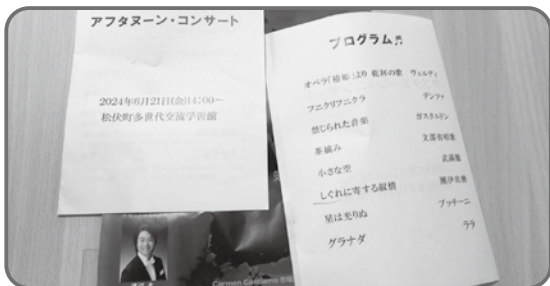 アフタヌーン・コンサート
2024年6月21日(金)14:00~
松伏町多世代交流学習館
プログラム♬
オペラ「椿姫」より 乾杯の歌 ヴェルディ
フニクリフニクラ デンツァ
禁じられた音楽 ガスタルドン
茶摘み 文部省唱歌
小さな空 武満徹
しぐれに寄する叙情 團伊玖磨
星は光りぬ プッチーニ
グラナダ ララ
Carmen